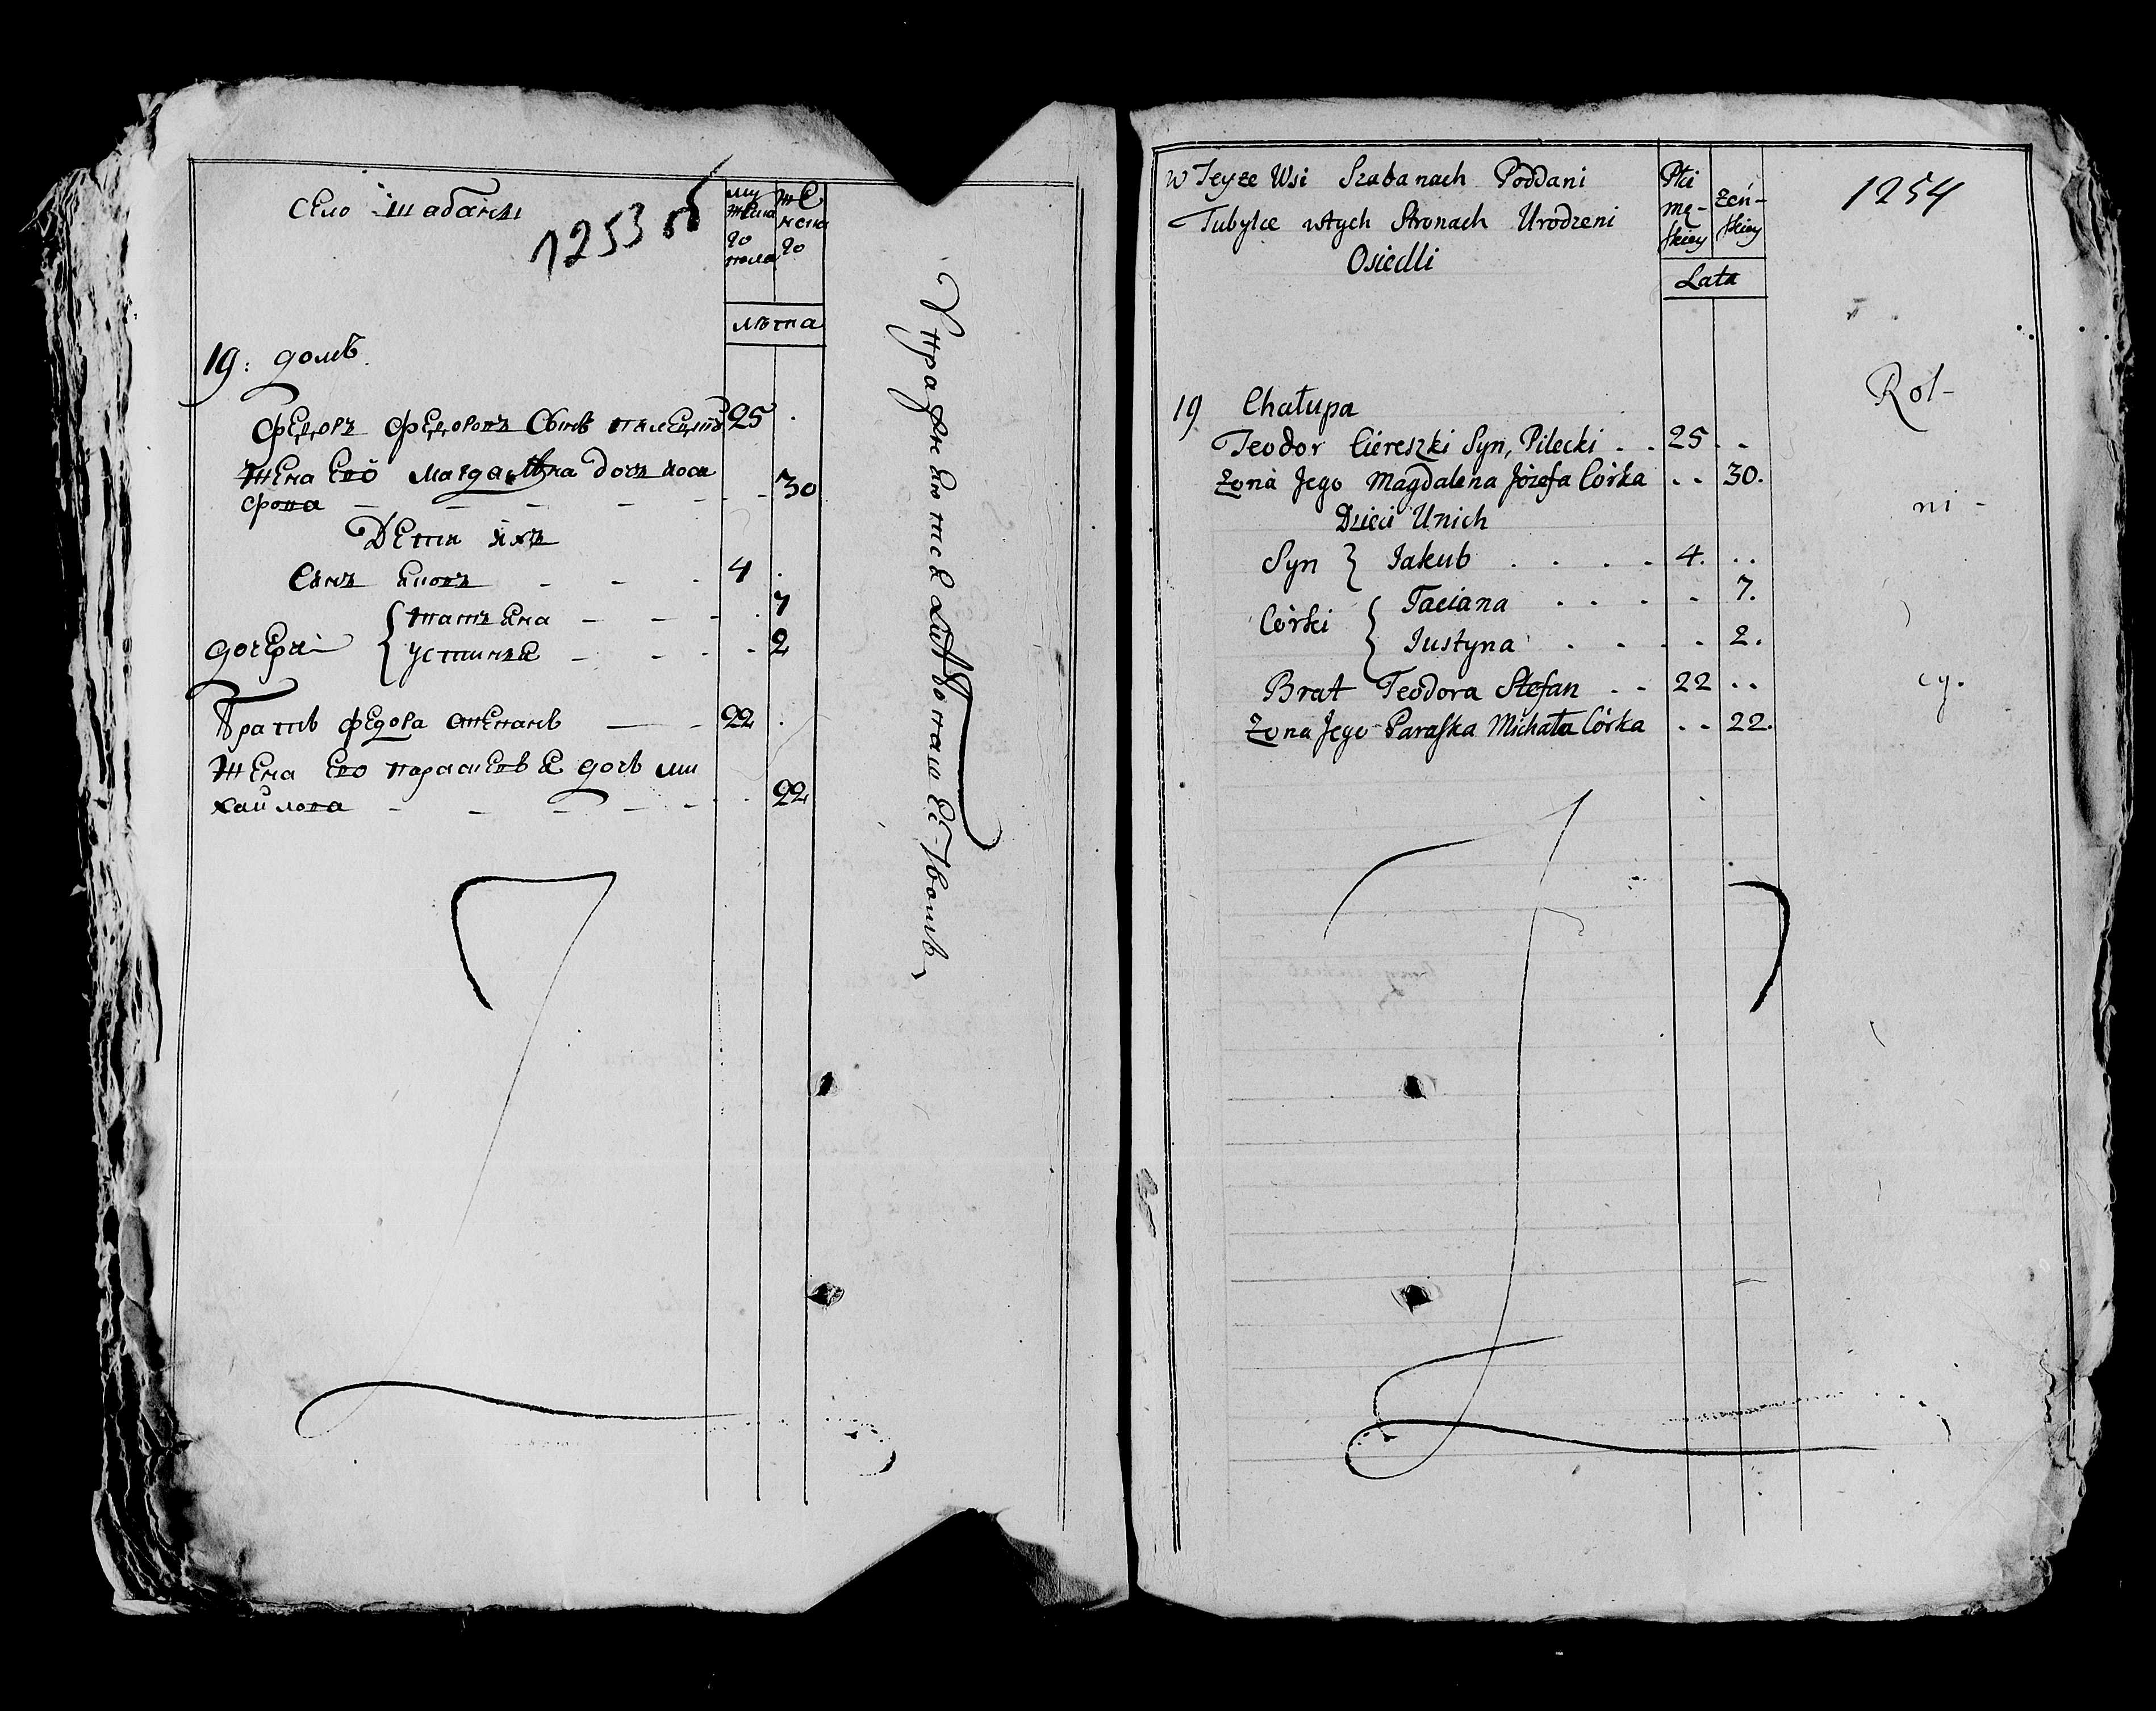 Село Шабаны
1253 об
му
жеска
го
пола
же
нска
го
лѣта
19: домъ.
Федоръ Федоровъ Сынъ пилецкиї 25
Жена Его магдалѣна дочъ иоси
фова 30
Дети ихъ
Сынъ Яковъ 4
дочери { татъяна 7
устинья 2
братъ федора степанъ 22
Жена Его параскевья дочь ми
хайлова 22
w Teyze Wsi Szabanach Poddani
Tubylce wtych Stronach Urodzeni
Osiedli
Płci
Mę-
skiey
żeń-
skiey
Lata
1254
19 Chałupa
Teodor Ciereszki Syn, Pilecki . . 25 . .
Żona Jego Magdalena Józefa Córka . . 30.
Dzieci Unich
Syn } Jakub . . . . 4. . .
Córki { Taciana . . . . 7.
Justyna . . . . 2.
Brat Teodora Stefan . . 22 . .
Żona Jego Paraska Michała Córka . . 22.
Rol-
ni-
cy.